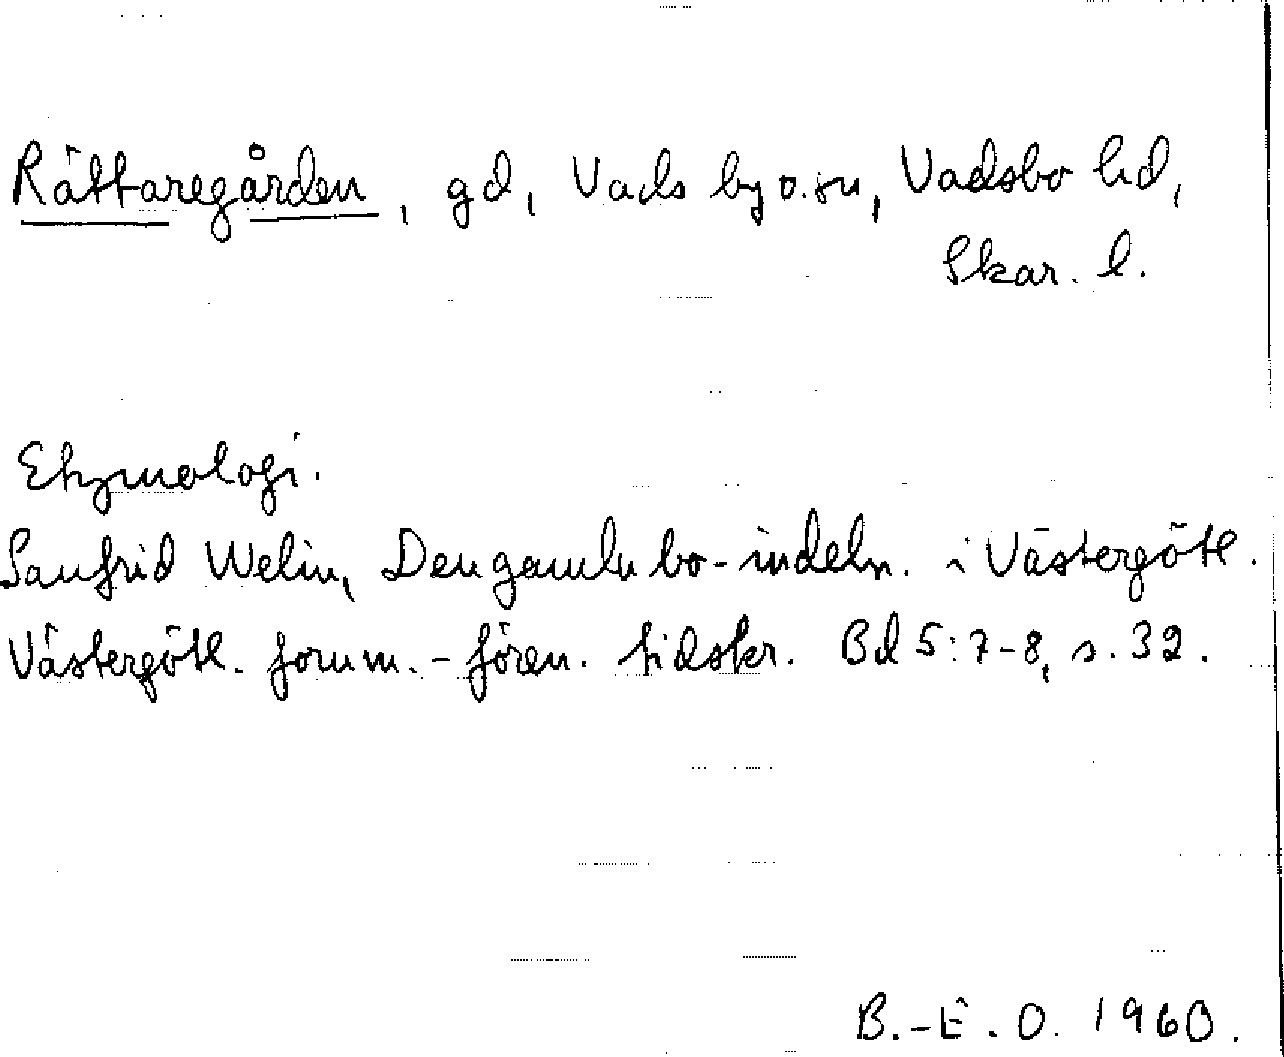 Rättaregården, gd, Vads by o. sn, Vadsbo hd,
Skar. l.
Etymologi.
Sanfrid Welin, Den gamla bo-indeln. i Västergötl.
Västergötl. fornm.-fören. tidskr. Bd 5:7-8, s. 32.
B.-E. O. 1960.